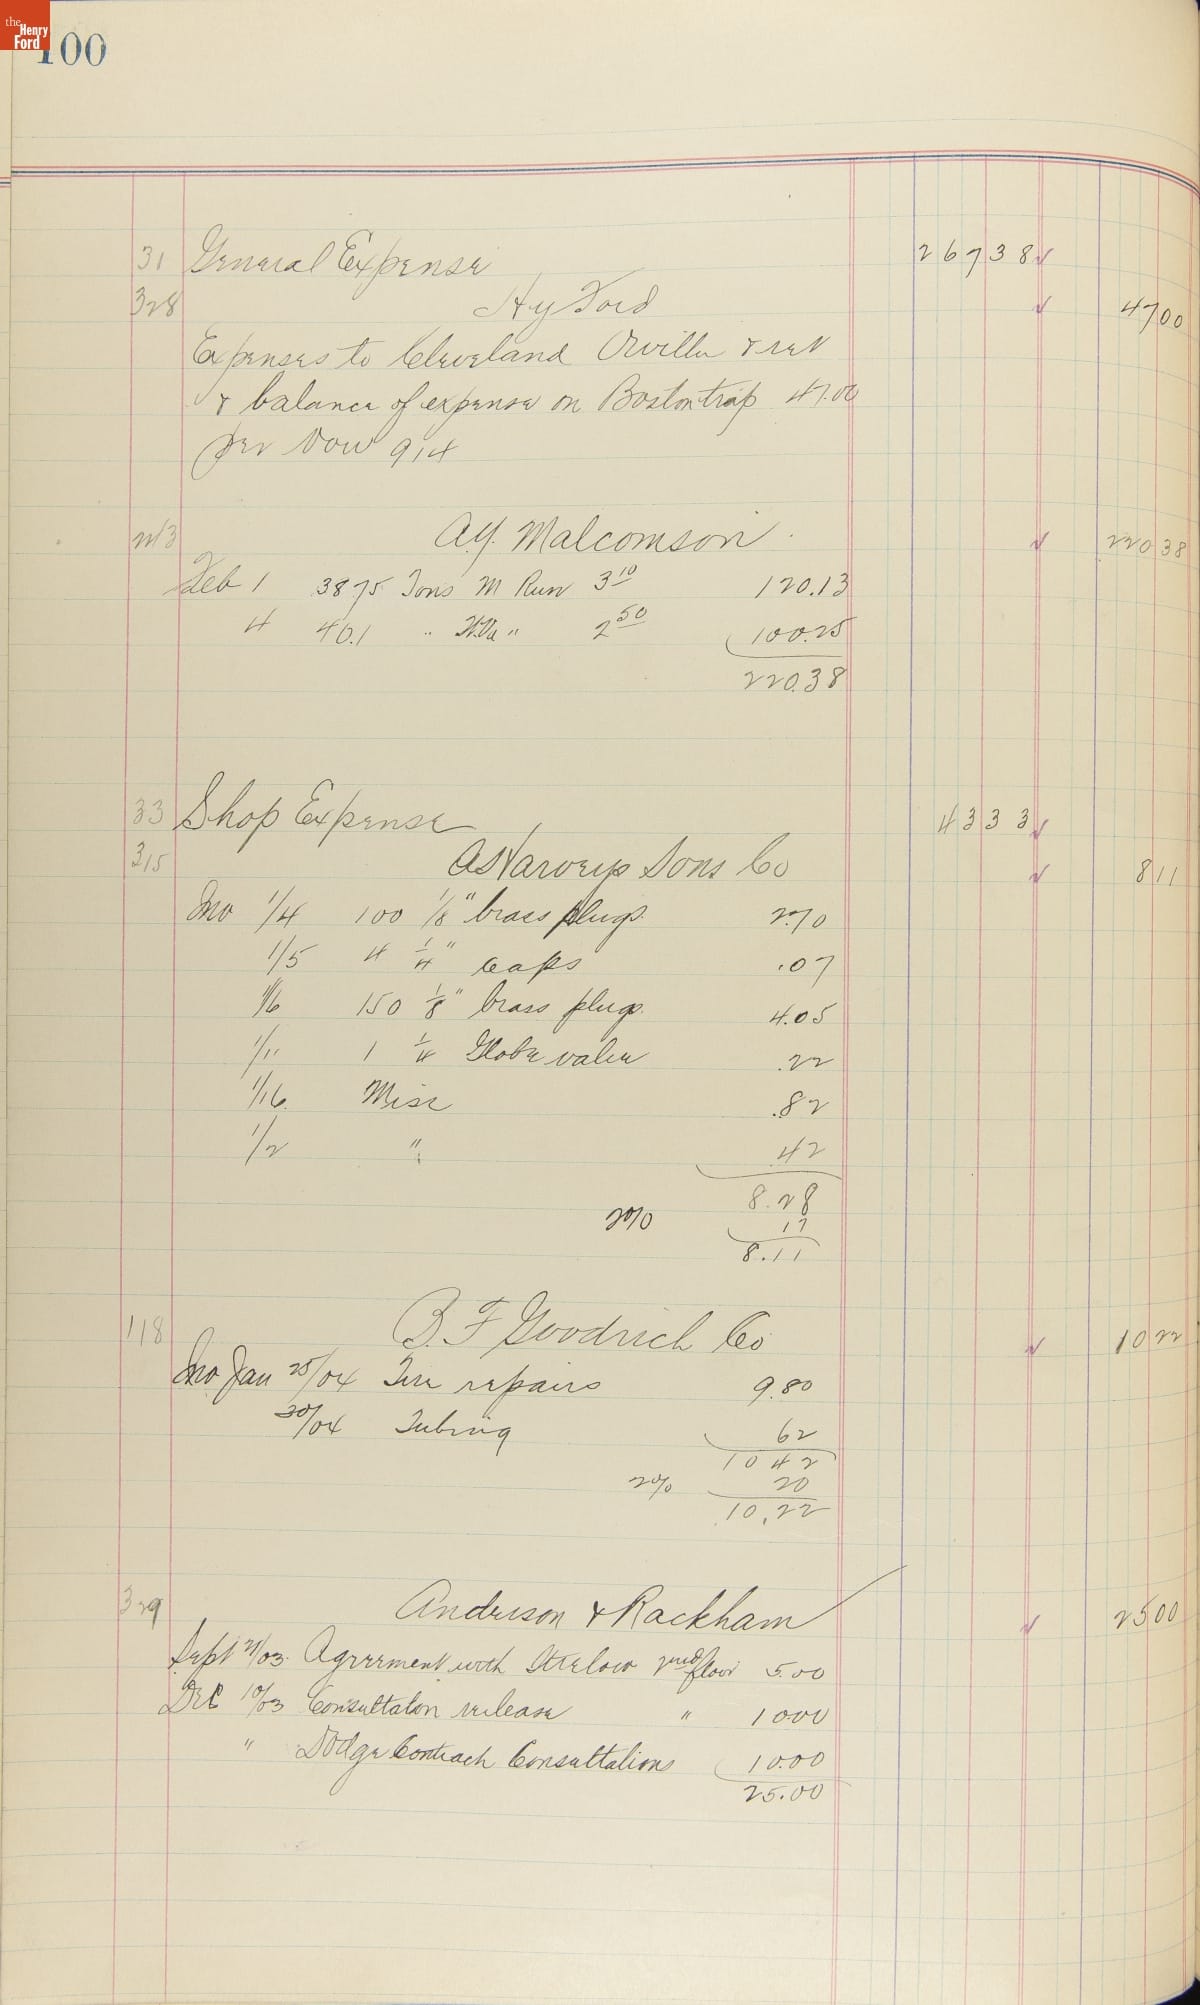 the Henry Ford
100
31 General Expense 267 38 ✓
328 Hy Ford ✓ 47 00
Expenses to Cleveland Orvilla & ret
& balance of expense on Boston trip 47.00
per Vow 914
213 A.Y. Malcomson ✓ 220 38
Feb 1 38 75 Tons M Run 3 10 120.13
4 40.1 " W.Va " 2 50 100.25
220.38
33 Shop Expense 43 33 ✓
315 Sons Co ✓ 8 11
Inv 1/4 100 1/8" brass plugs 2.70
1/5 4 1/4" caps .07
1/6 150 1/8" brass plugs 4.05
1/11 1 1/4 Globe valve .22
1/16 Misc .82
1/2 " .42
8.28
2% 17
8.11
118 B. F Goodrich Co ✓ 10 22
Inv Jan 25/04 Tire repairs 9.80
30/04 Tubing 62
10 42
2% 20
10.22
329 Anderson & Rackham ✓ 25 00
Sept 21/03 Agreement with Strelow 2nd floor 5.00
Dec 10/03 Consultaton release " 10.00
" Dodge Contract Consultations 10.00
25.00